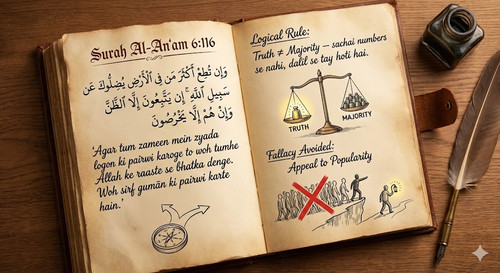 Surah Al-An'am 6:116
وَإِن تُطِعْ أَكْثَرَ مَن فِى ٱلْأَرْضِ يُضِلُّوكَ عَن
سَبِيلِ ٱللَّهِ ۚ إِن يَتَّبِعُونَ إِلَّا ٱلظَّنَّ
وَإِنْ هُمْ إِلَّا يَخْرُصُونَ
'Agar tum zameen mein zyada
logon ki pairwi karoge to woh tumhe
Allah ke raaste se bhatka denge.
Woh sirf gumān ki pairwi karte
hain.'
Logical Rule:
Truth ≠ Majority – sachai numbers
se nahi, dalil se tay hoti hai.
TRUTH
MAJORITY
Fallacy Avoided:
Appeal to Popularity